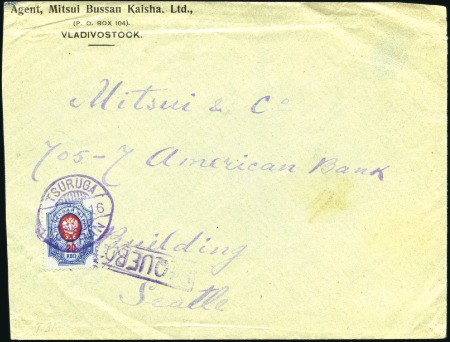 Agent, Mitsui Bussan Kaisha, Ltd.,
(P. O. BOX 104).
VLADIVOSTOCK.
Mitsui & Co
705-7 American Bank
TSURUGA
16
20
КОП
Building
PAQUEBO
Seatle